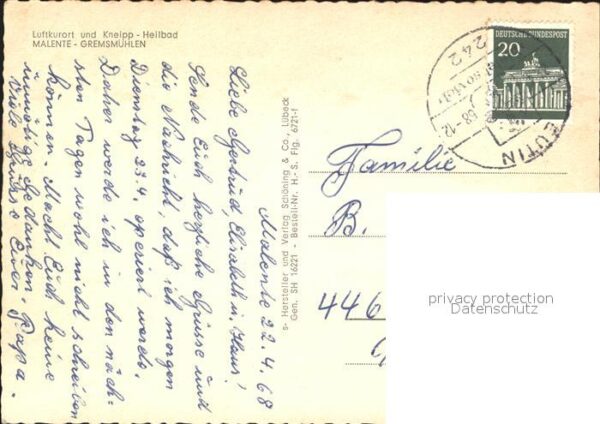 Luftkurort und Kneipp - Heilbad
MALENTE - GREMSMÜHLEN
Malente 22.4.68
Liebe Gertrud, Elisabeth u. Hans!
Sende Euch herzliche Grüsse und
die Nachricht, daß ich morgen
Dienstag 23.4. operiert werde.
Daher werde ich in den näch=
sten Tagen wohl nicht schreiben
können. Macht Euch keine
unnötige Gedanken.
Viele Grüsse Euer Papa.
s- Hersteller und Verlag Schöning & Co., Lübeck
Gen. SH 16221 - Bestell-Nr. H.-S. Flg. 6721-f
DEUTSCHE BUNDESPOST
20
242
EUTIN
68-12
Familie
B.
446
privacy protection
Datenschutz